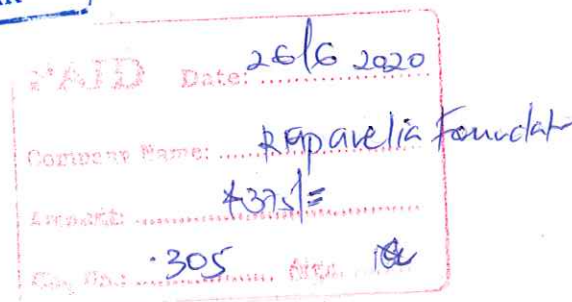 PAID Date: 26/6 2020
Company Name: Rapavelia Foundat
Amount: 4375/=
No.: 305 Sign.